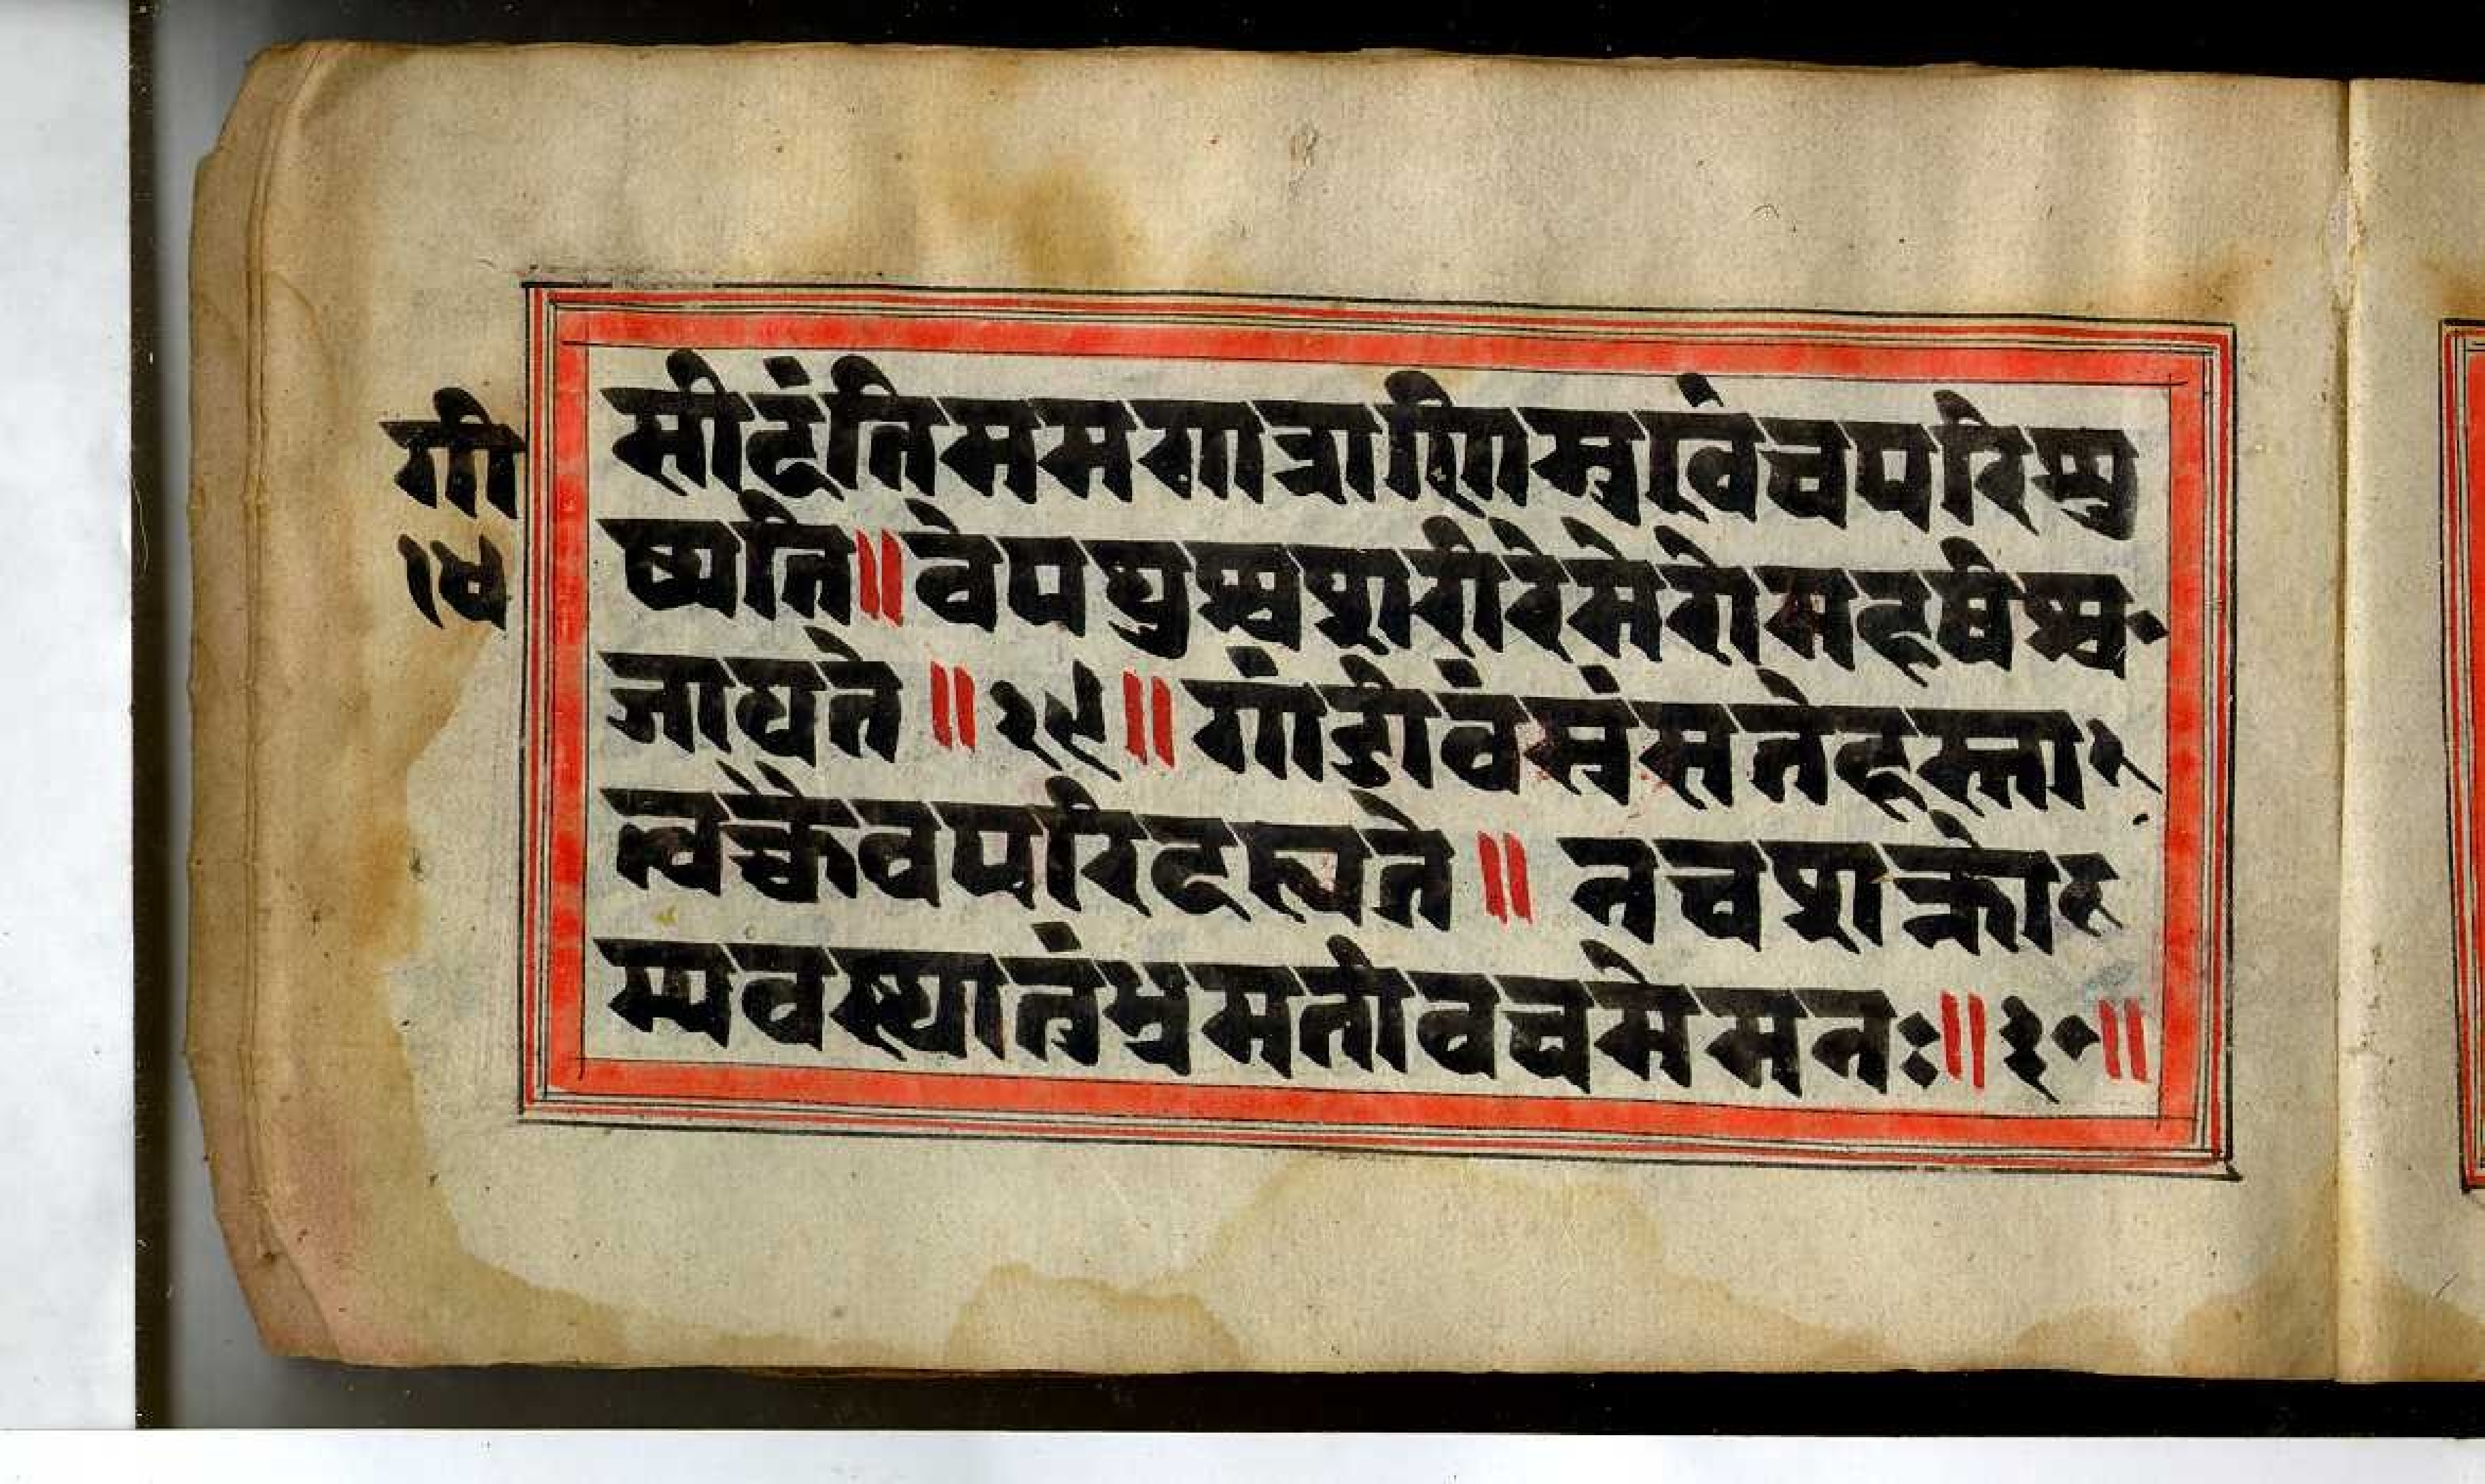 गी
१४
सीदंतिममगात्राणिमुखंचपरिशु
ष्यति॥वेपथुश्चशरीरेमेरोमहर्षश्च
जायते॥२९॥गांडीवंस्रंसतेहस्ता
त्वक्चैवपरिदह्यते॥नचशक्नो
म्यवस्थातुंभ्रमतीवचमेमनः॥३०॥